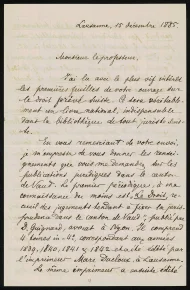 Lausanne, 15 décembre 1885.
Monsieur le professeur,
J'ai lu avec le plus vif intérêt
les premières feuilles de votre ouvrage sur
le droit privé suisse. Ce sera véritablement
un livre national, indispensable
dans la bibliothèque de tout juriste suisse.
En vous remerciant de votre envoi,
je m'empresse de vous donner les renseignements
que vous me demandez sur les
publications juridiques dans le canton
de Vaud. Le premier périodique, à ma
connaissance du moins est, Le Droit, recueil
des jugements tendant à fixer la jurisprudence
dans le canton de Vaud, publié par
D. Guignard, avocat à Nyon. Il comprend
4 tomes in-8°, correspondant aux années
1839, 1840, 1841 & 1842 et a été édité par
l'imprimeur Marc Ducloux, à Lausanne.
Le même imprimeur a ensuite édité